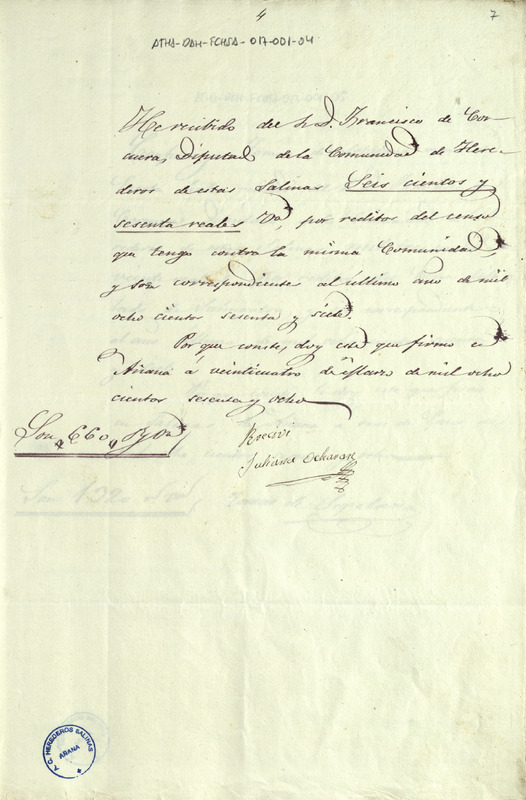 4
7
ATHA-DAH-FCHSA-017-001-04
He recibido del Sr D. Francisco de Cor-
cuera, Diputado de la Comunidad de Here-
deros de estas Salinas Seis cientos y
sesenta reales Vn, por reditos del censo
que tengo contra la misma Comunidad,
y son correspondientes al último año de mil
ocho cientos sesenta y siete.
Por que conste, doy este que firmo en
Añana a veinticuatro de Marzo de mil ocho
cientos sesenta y ocho
Son "660" Rs Vn
Recivi
Juliana Ochoran
A.C. HEREDEROS SALINAS
AÑANA